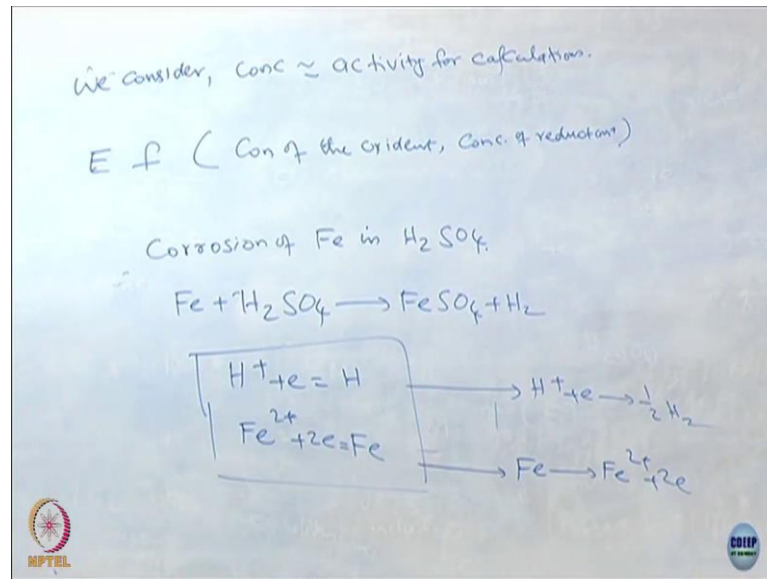 We consider, Conc ≃ activity for calculations.
E f ( Con of the oxident, Conc. of reductant)
Corrosion of Fe in H₂SO₄.
Fe + H₂SO₄ → FeSO₄ + H₂
H⁺ + e = H → H⁺ + e → ½ H₂
Fe²⁺ + 2e = Fe → Fe → Fe²⁺ + 2e
NPTEL
CDEEP
IIT BOMBAY